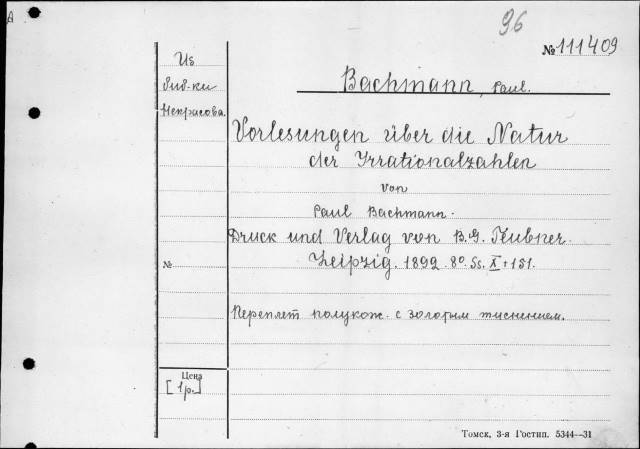 96
№ 111409
Из
биб-ки
Некрасова.
Bachmann, Paul.
Vorlesungen über die Natur
der Irrationalzahlen
von
Paul Bachmann.
Druck und Verlag von B. G. Teubner.
Leipzig. 1892. 8º. Ss. X + 151.
№
Переплет полукож. с золотым тиснением.
Цена
[1р.]
Томск, 3-я Гостип. 5344—31